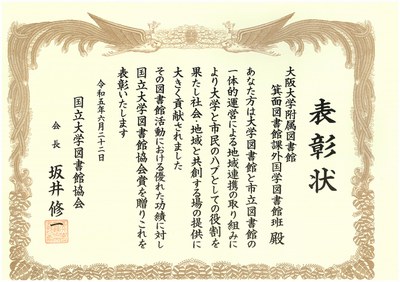 表彰状
大阪大学附属図書館
箕面図書館課外国学図書館班 殿
あなた方は大学図書館と市立図書館の
一体的運営による地域連携の取り組みに
より大学と市民のハブとしての役割を
果たし社会・地域と共創する場の提供に
大きく貢献されました
その図書館活動における優れた功績に対し
国立大学図書館協会賞を贈りこれを
表彰いたします
令和五年六月二十二日
国立大学図書館協会
会長 坂井修一